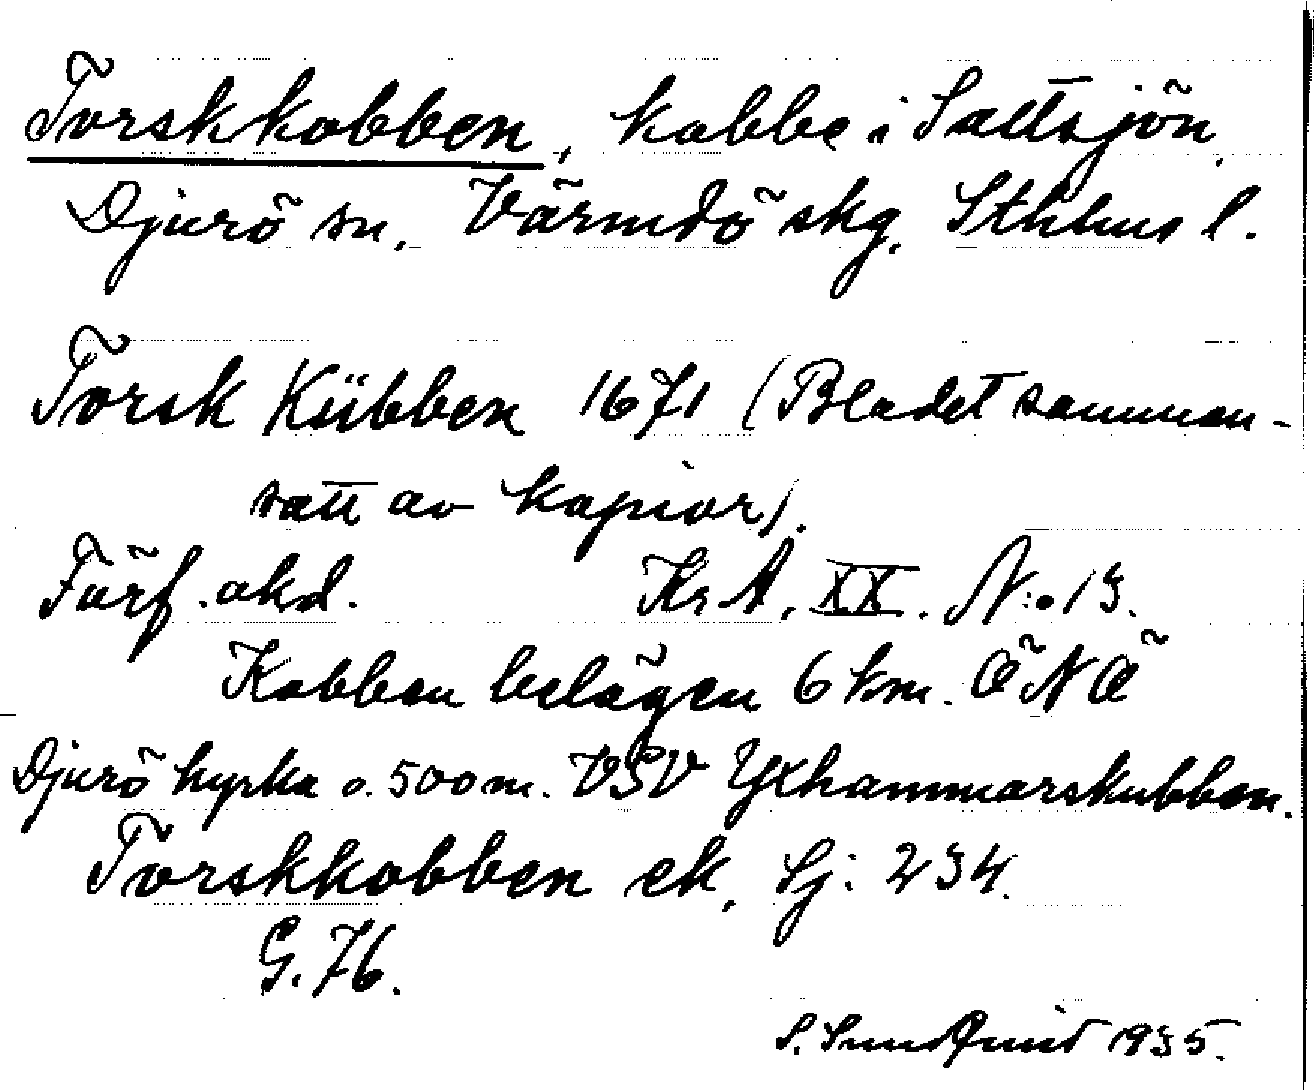 Torskkobben, kobbe i Saltsjön,
Djurö sn, Värmdö skg, Sthlms l.
Torsk Kübben 1671 (Bladet samman-
satt av kopior).
Förf. okd. Kr.A. XX. N:o 13.
Kobben belägen 6 km. ÖNÖ
Djurö kyrka o. 500 m. VSV Yxhammarskubben.
Torskkobben ek, Sj: 234.
G. 76.
S. Sundquist 1935.